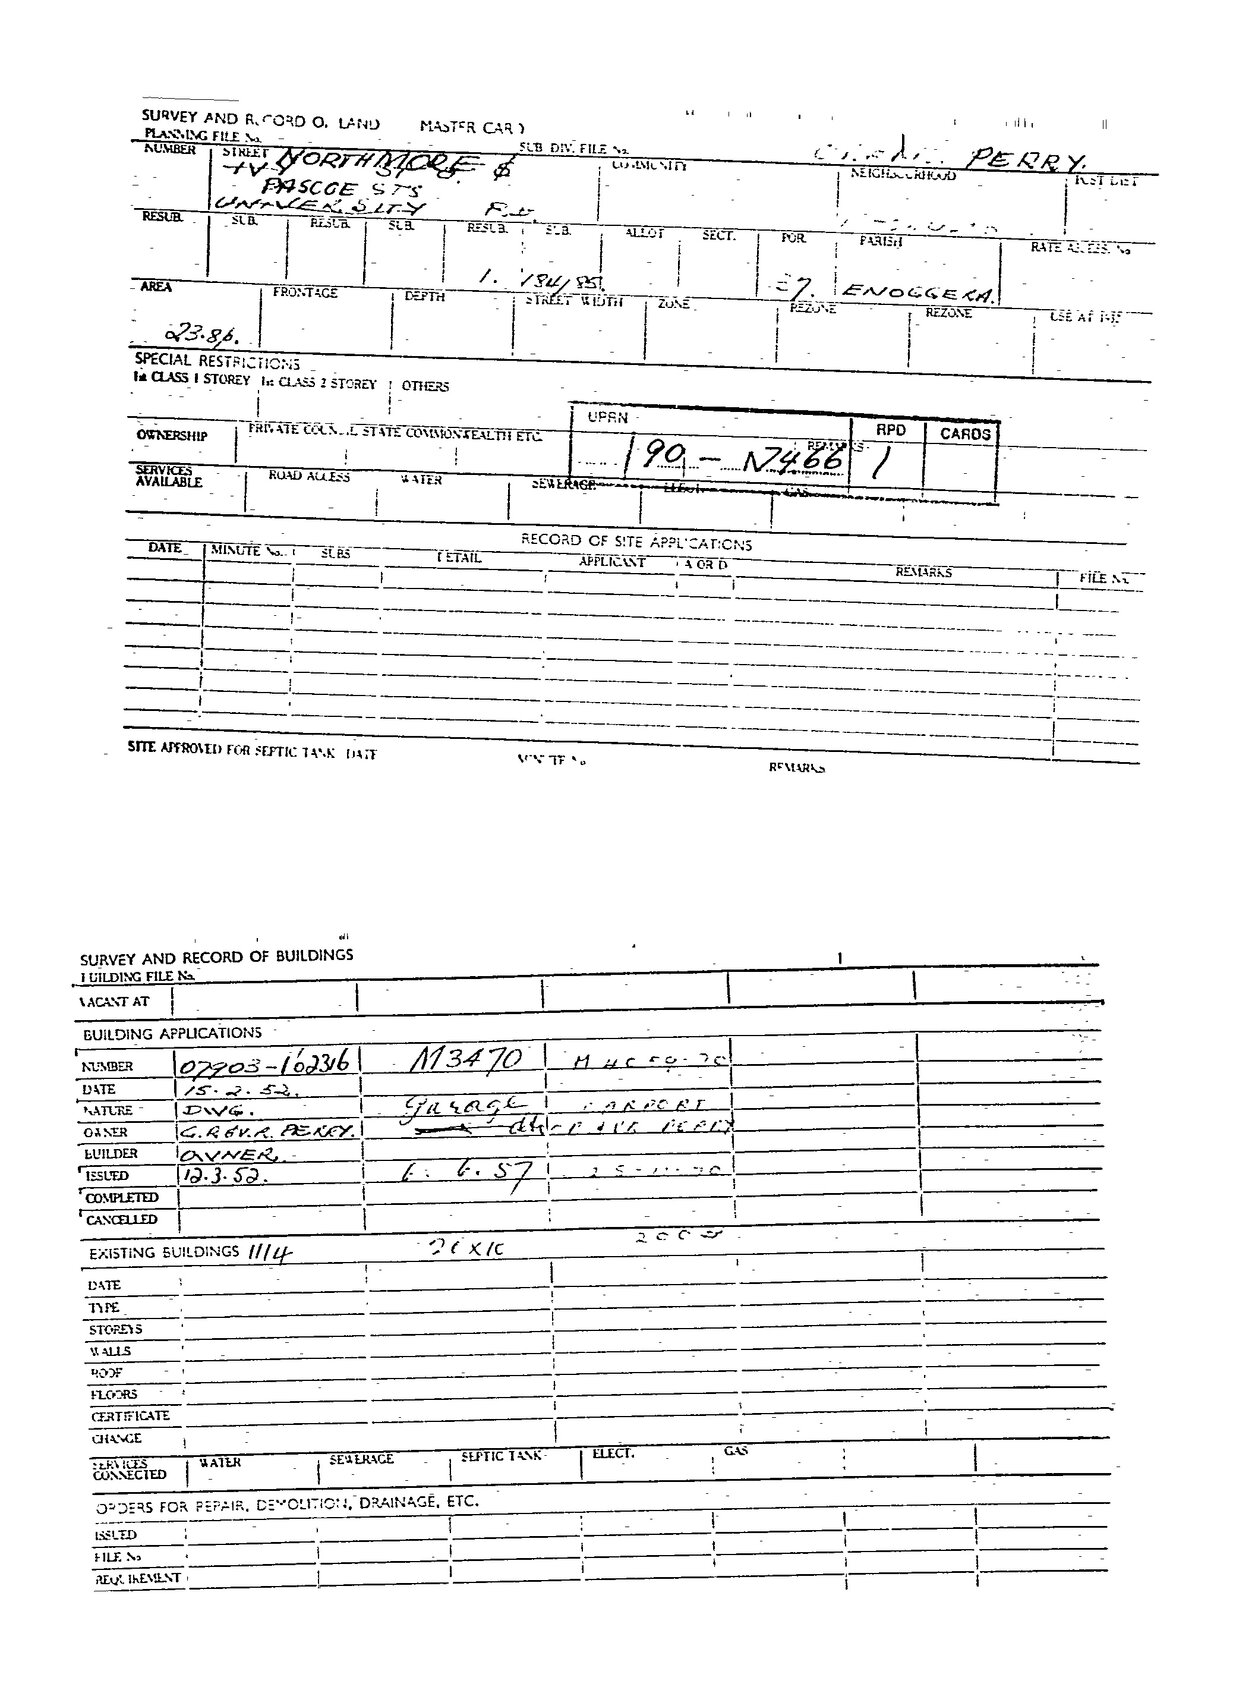 SURVEY AND RECORD OF LAND MASTER CARD
PLANNING FILE No. SUB DIV. FILE No.
PERRY.
NUMBER STREET NORTHMORE ST & COMMUNITY NEIGHBOURHOOD POST DIST
PASCOE STS
UNIVERSITY
RESUB. SUB. RESUB. SUB. RESUB. SUB. ALLOT SECT. POR. PARISH RATE ASSESS. No
1. 184/85. ENOGGERA.
AREA FRONTAGE DEPTH STREET WIDTH ZONE REZONE REZONE USE AT
23.8p.
SPECIAL RESTRICTIONS
1st CLASS 1 STOREY 1st CLASS 2 STOREY OTHERS
UPRN RPD CARDS
OWNERSHIP PRIVATE COUNCIL STATE COMMONWEALTH ETC. REMARKS
190 - N7466 1
SERVICES AVAILABLE ROAD ACCESS WATER SEWERAGE ELECT. GAS
RECORD OF SITE APPLICATIONS
DATE MINUTE No. SUBS DETAIL APPLICANT A OR D REMARKS FILE No.
SITE APPROVED FOR SEPTIC TANK DATE MINUTE No REMARKS
SURVEY AND RECORD OF BUILDINGS
BUILDING FILE No.
VACANT AT
BUILDING APPLICATIONS
NUMBER 07903-162316 M3470
DATE 15.2.52.
NATURE DWG. garage CARPORT
OWNER G.R &V.R. PERRY. PERRY
BUILDER OWNER.
ISSUED 12.3.52. 6.57
COMPLETED
CANCELLED
EXISTING BUILDINGS 1114
DATE
TYPE
STOREYS
WALLS
ROOF
FLOORS
CERTIFICATE
CHANGE
SERVICES CONNECTED WATER SEWERAGE SEPTIC TANK ELECT. GAS
ORDERS FOR REPAIR, DEMOLITION, DRAINAGE, ETC.
ISSUED
FILE No
REQUIREMENT